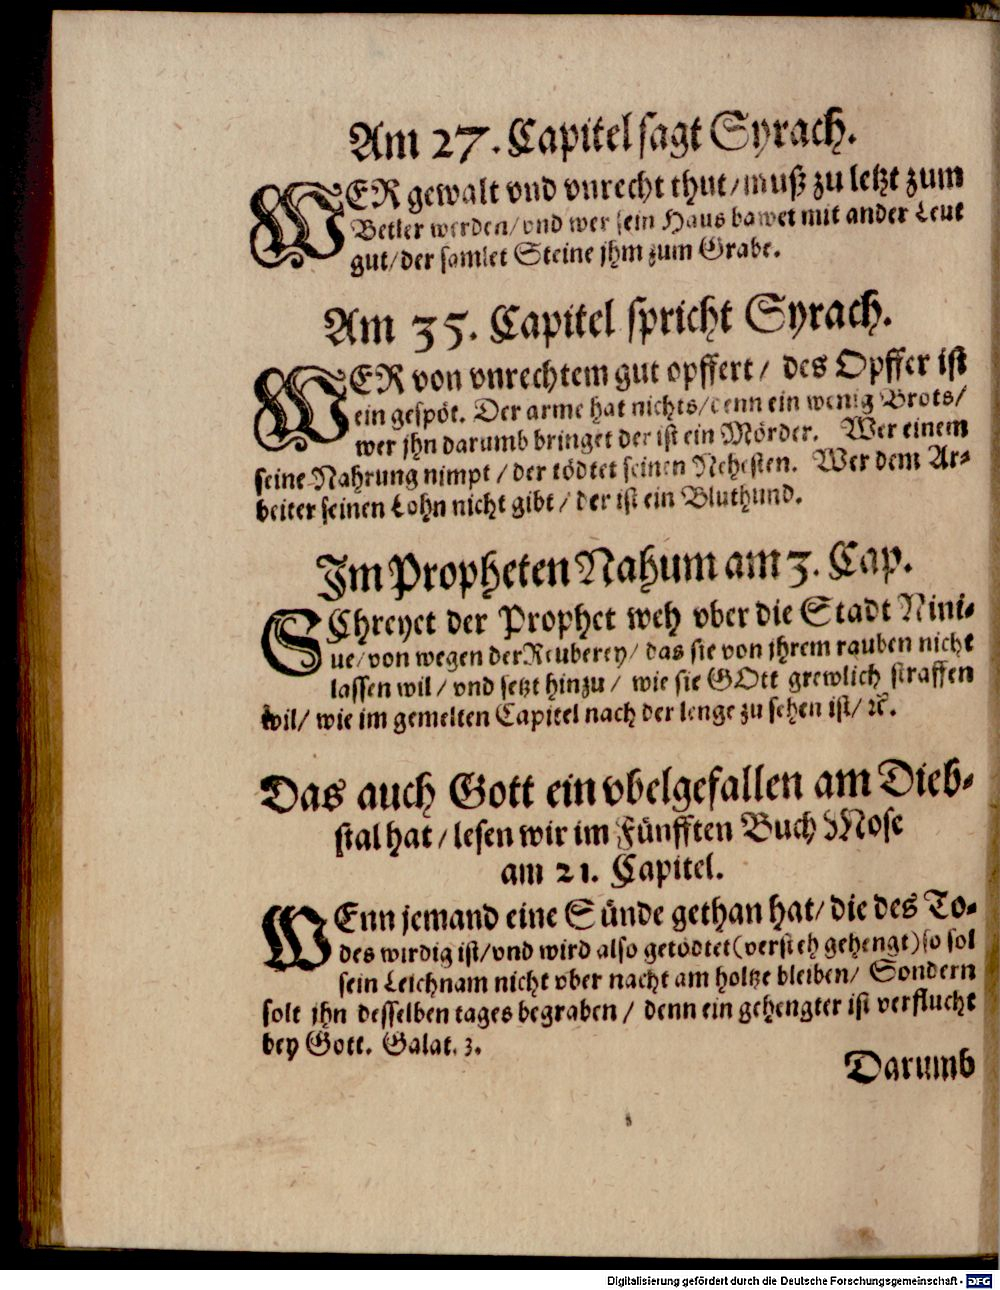 Am 27. Capitel sagt Syrach.
WER gewalt vnd vnrecht thut/ muß zu letzt zum
Betler werden/ vnd wer sein Haus bawet mit ander Leut
gut/ der samlet Steine jhm zum Grabe.
Am 35. Capitel spricht Syrach.
WER von vnrechtem gut opffert/ des Opffer ist
ein gespöt. Der arme hat nichts/ denn ein wenig Brots/
wer jhn darumb bringet der ist ein Mörder. Wer einem
seine Nahrung nimpt/ der tödtet seinen Nehesten. Wer dem Ar-
beiter seinen Lohn nicht gibt/ der ist ein Bluthund.
Im Propheten Nahum am 3. Cap.
SChreyet der Prophet weh vber die Stadt Nini-
ue/ von wegen der Reuberey/ das sie von jhrem rauben nicht
lassen wil/ vnd setzt hinzu/ wie sie GOtt grewlich straffen
wil/ wie im gemelten Capitel nach der lenge zu sehen ist/ ꝛc.
Das auch Gott ein vbelgefallen am Dieb-
stal hat/ lesen wir im Fünfften Buch Mose
am 21. Capitel.
WEnn jemand eine Sünde gethan hat/ die des To-
des wirdig ist/ vnd wird also getödtet (versteh gehengt) so sol
sein Leichnam nicht vber nacht am holtze bleiben/ Sondern
solt jhn desselben tages begraben/ denn ein gehengter ist verflucht
bey Gott. Galat. 3.
Darumb
Digitalisierung gefördert durch die Deutsche Forschungsgemeinschaft - DFG